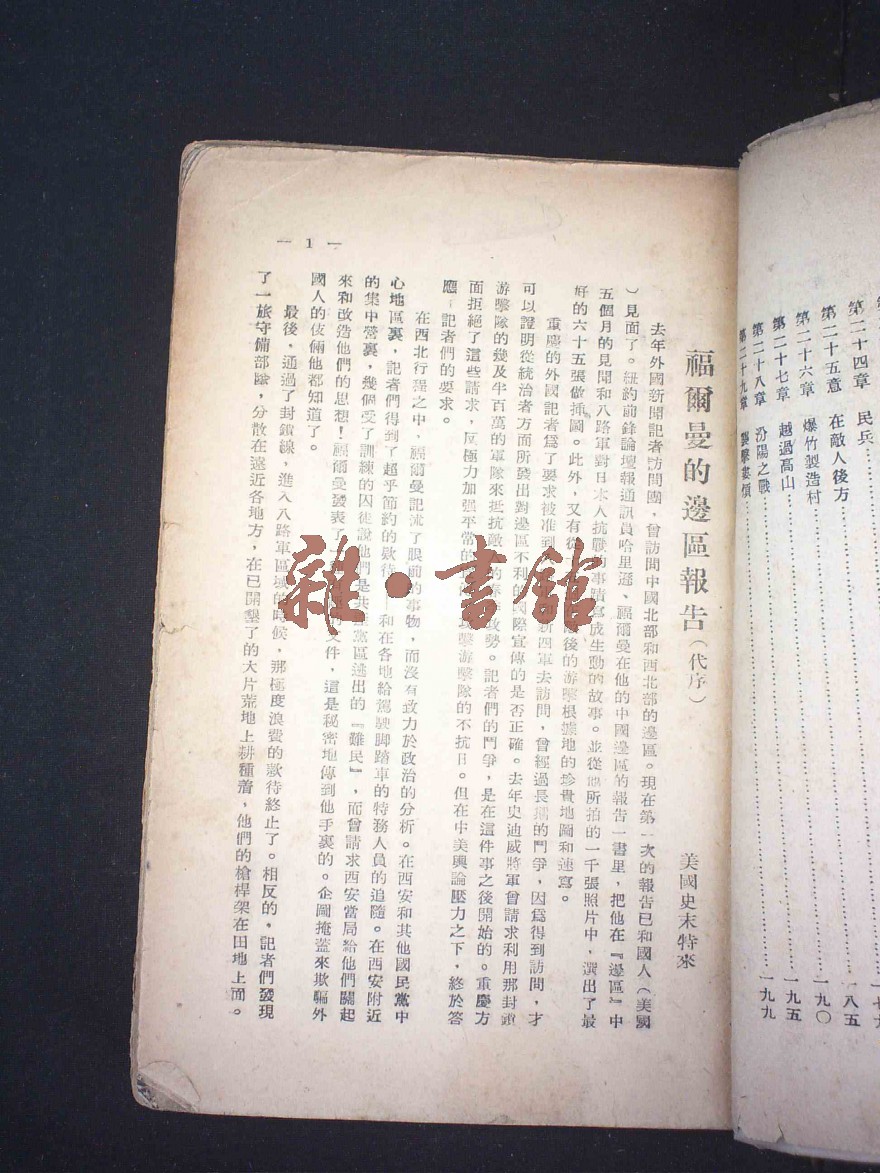 第二十四章 民兵……
第二十五章 在敵人後方……一八五
第二十六章 爆竹製造村……一九〇
第二十七章 越過高山……一九五
第二十八章 汾陽之戰……一九九
第二十九章 襲擊婁煩……
福爾曼的邊區報告(代序)
美國史末特來
去年外國新聞記者訪問團,曾訪問中國北部和西北部的邊區。現在第一次的報告已和國人(美國
)見面了。紐約前鋒論壇報通訊員哈里遜、福爾曼在他的中國邊區的報告一書里,把他在『邊區』中
五個月的見聞和八路軍對日本人抗戰的事蹟寫成生動的故事。並從他所拍的一千張照片中,選出了最
好的六十五張做插圖。此外,又有從後的游擊根據地的珍貴地圖和速寫。
重慶的外國記者爲了要求被准到新四軍去訪問,曾經過長期的鬥爭,因爲得到訪問,才
可以證明從統治者方面所發出對邊區不利的國際宣傳的是否正確。去年史迪威將軍曾請求利用那封鎖
游擊隊的幾及半百萬的軍隊來抵抗敵的攻勢。記者們的鬥爭,是在這件事之後開始的。重慶方
面拒絕了這些請求,反極力加强平常的擊游擊隊的不抗日。但在中美輿論壓力之下,終於答
應了記者們的要求。
在西北行程之中,福爾曼記流了眼前的事物,而沒有致力於政治的分析。在西安和其他國民黨中
心地區裏,記者們得到了超乎節約的欵待——和在各地給駕駛脚踏車的特務人員的追隨。在西安附近
的集中營裏,幾個受了訓練的囚徒說他們是共黨區逃出的『難民』,而曾請求西安當局給他們關起
來和改造他們的思想!福爾曼發表了一文件,這是秘密地傳到他手裏的。企圖掩蓋來欺騙外
國人的伎倆他都知道了。
最後,通過了封鎖線,進入八路軍區域的時候,那極度浪費的欵待終止了。相反的,記者們發現
了一旅守備部隊,分散在遠近各地方,在已開墾了的大片荒地上耕種着,他們的槍桿架在田地上面。
— 1 —
雜·書館